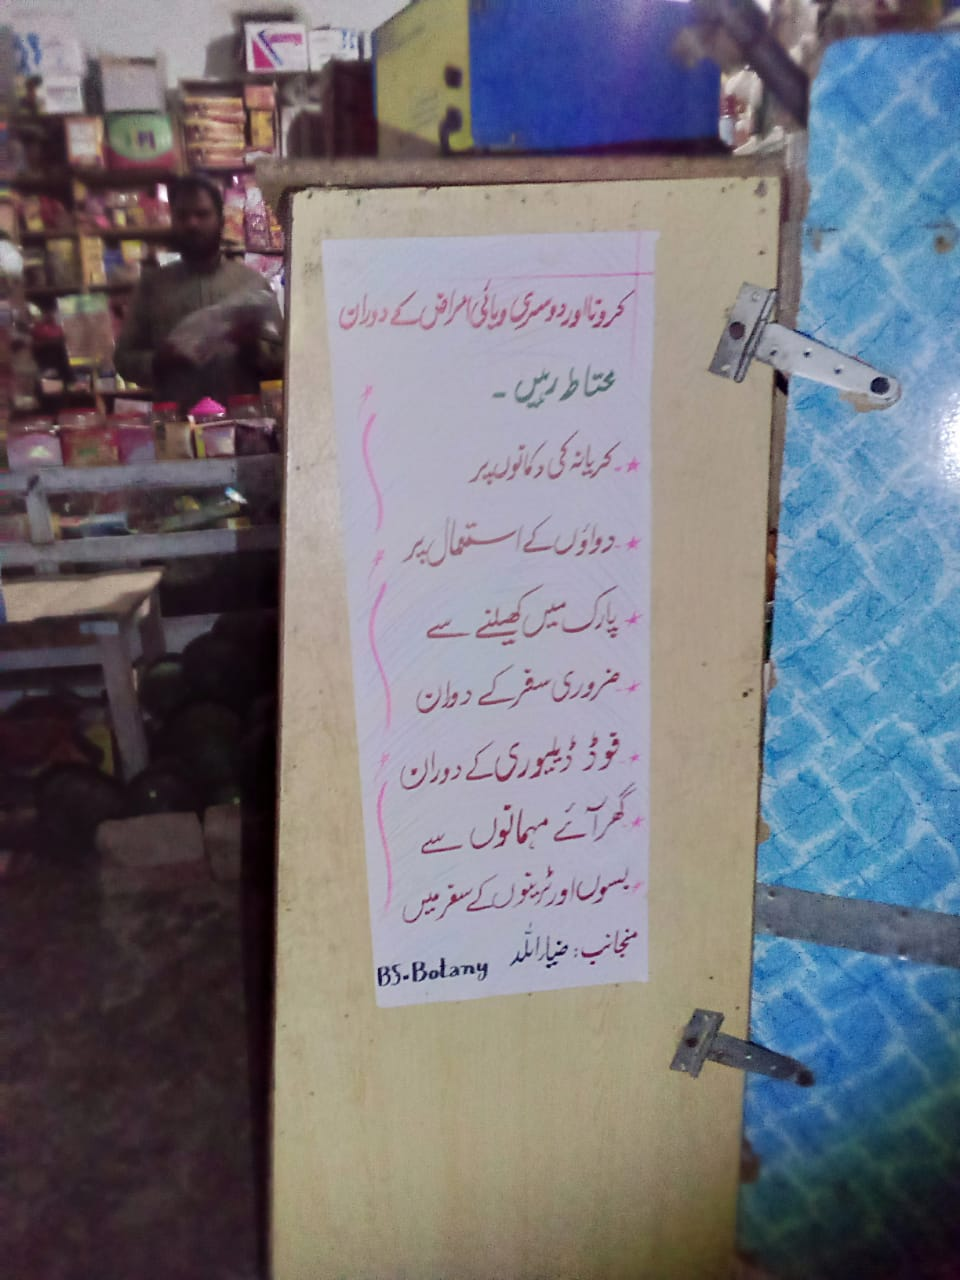 کرونا اور دوسری وبائی امراض کے دوران
محتاط رہیں ۔
کریانہ کی دکانوں پر
دواؤں کے استعمال پر
پارک میں کھیلنے سے
ضروری سفر کے دوران
فوڈ ڈیلیوری کے دوران
گھر آئے مہمانوں سے
بسوں اور ٹرینوں کے سفر میں
منجانب : ضیاء اللہ BS.Botany